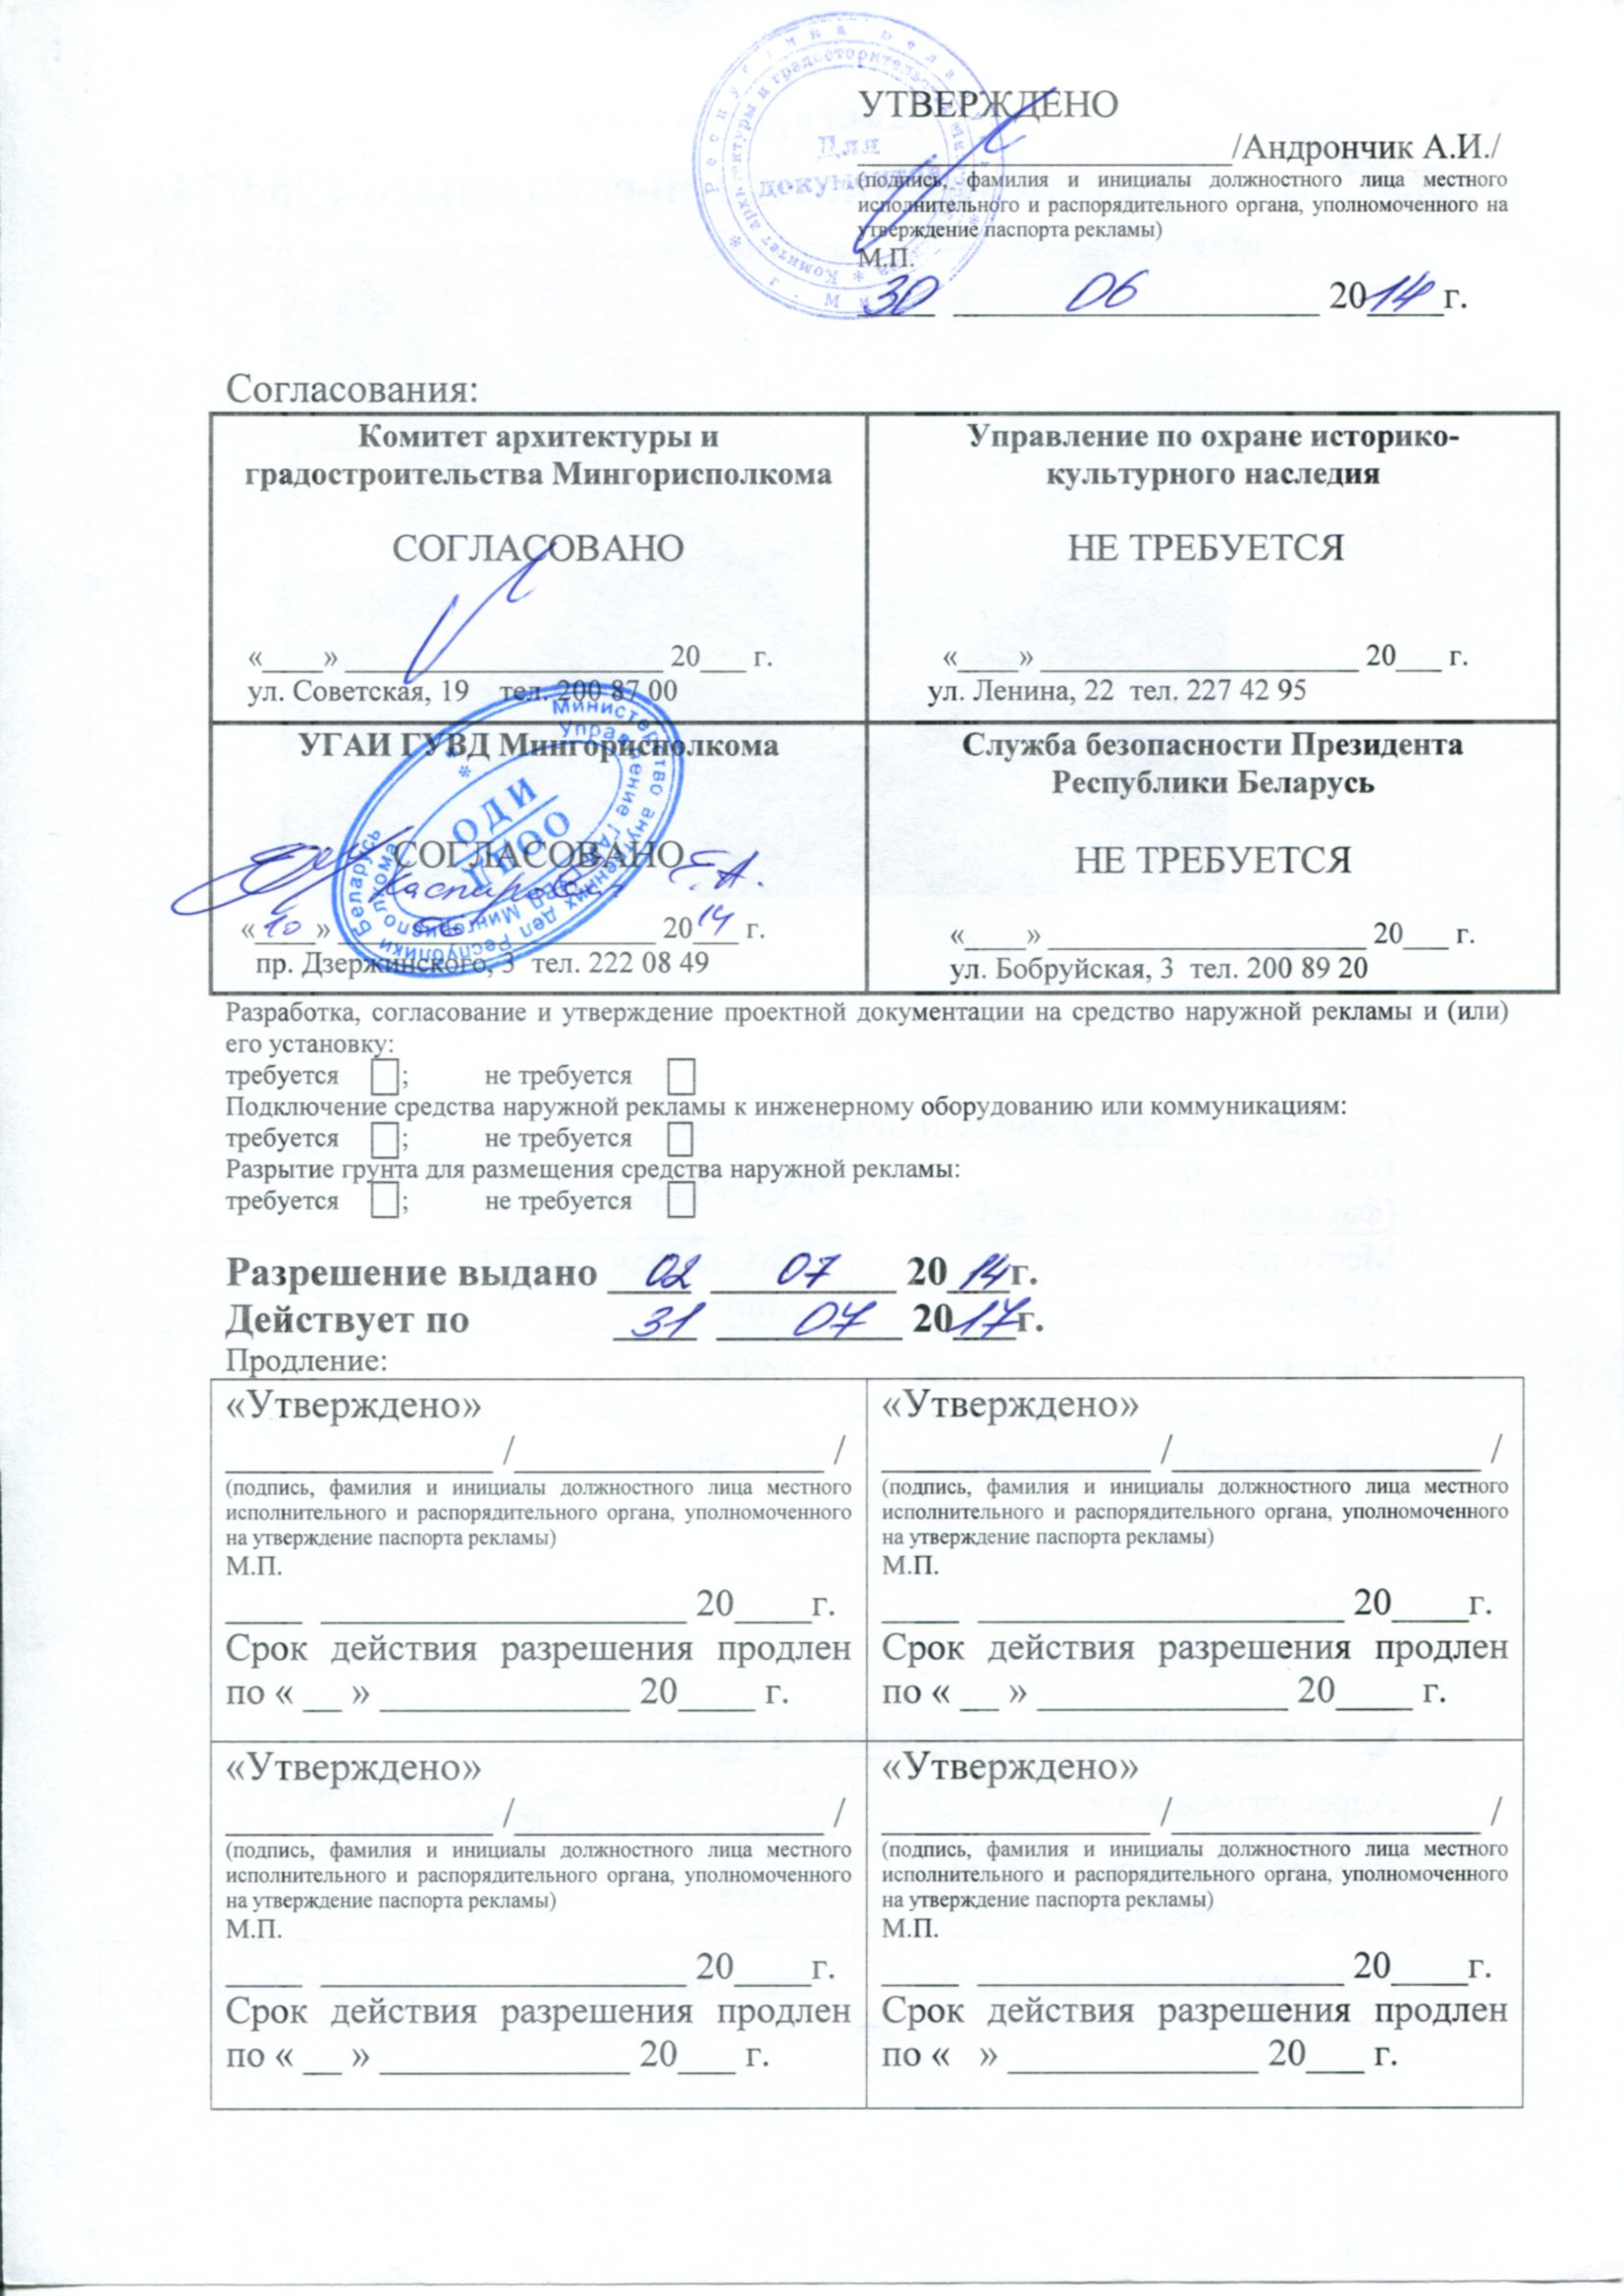 УТВЕРЖДЕНО
____________________/Андрончик А.И./
(подпись, фамилия и инициалы должностного лица местного
исполнительного и распорядительного органа, уполномоченного на
утверждение паспорта рекламы)
М.П.
30 06 2014г.
Для
документов
Согласования:
Комитет архитектуры и
градостроительства Мингорисполкома
СОГЛАСОВАНО
«____» ____________________ 20___ г.
ул. Советская, 19 тел. 200 87 00
Управление по охране историко-
культурного наследия
НЕ ТРЕБУЕТСЯ
«____» ____________________ 20___ г.
ул. Ленина, 22 тел. 227 42 95
УГАИ ГУВД Мингорисполкома
СОГЛАСОВАНО
Е.А.
«10» ____________________ 2014 г.
пр. Дзержинского, 3 тел. 222 08 49
ОДИ
Служба безопасности Президента
Республики Беларусь
НЕ ТРЕБУЕТСЯ
«____» ____________________ 20___ г.
ул. Бобруйская, 3 тел. 200 89 20
Разработка, согласование и утверждение проектной документации на средство наружной рекламы и (или)
его установку:
требуется ; не требуется
Подключение средства наружной рекламы к инженерному оборудованию или коммуникациям:
требуется ; не требуется
Разрытие грунта для размещения средства наружной рекламы:
требуется ; не требуется
Разрешение выдано 02 07 2014г.
Действует по 31 07 2017г.
Продление:
«Утверждено»
______________ /________________ /
(подпись, фамилия и инициалы должностного лица местного
исполнительного и распорядительного органа, уполномоченного
на утверждение паспорта рекламы)
М.П.
____ ___________________ 20____г.
Срок действия разрешения продлен
по « __ » _____________ 20____ г.
«Утверждено»
______________ /________________ /
(подпись, фамилия и инициалы должностного лица местного
исполнительного и распорядительного органа, уполномоченного
на утверждение паспорта рекламы)
М.П.
____ ___________________ 20____г.
Срок действия разрешения продлен
по « __ » _____________ 20____ г.
«Утверждено»
______________ /________________ /
(подпись, фамилия и инициалы должностного лица местного
исполнительного и распорядительного органа, уполномоченного
на утверждение паспорта рекламы)
М.П.
____ ___________________ 20____г.
Срок действия разрешения продлен
по « __ » _____________ 20___ г.
«Утверждено»
______________ /________________ /
(подпись, фамилия и инициалы должностного лица местного
исполнительного и распорядительного органа, уполномоченного
на утверждение паспорта рекламы)
М.П.
____ ___________________ 20____г.
Срок действия разрешения продлен
по « » _____________ 20___ г.